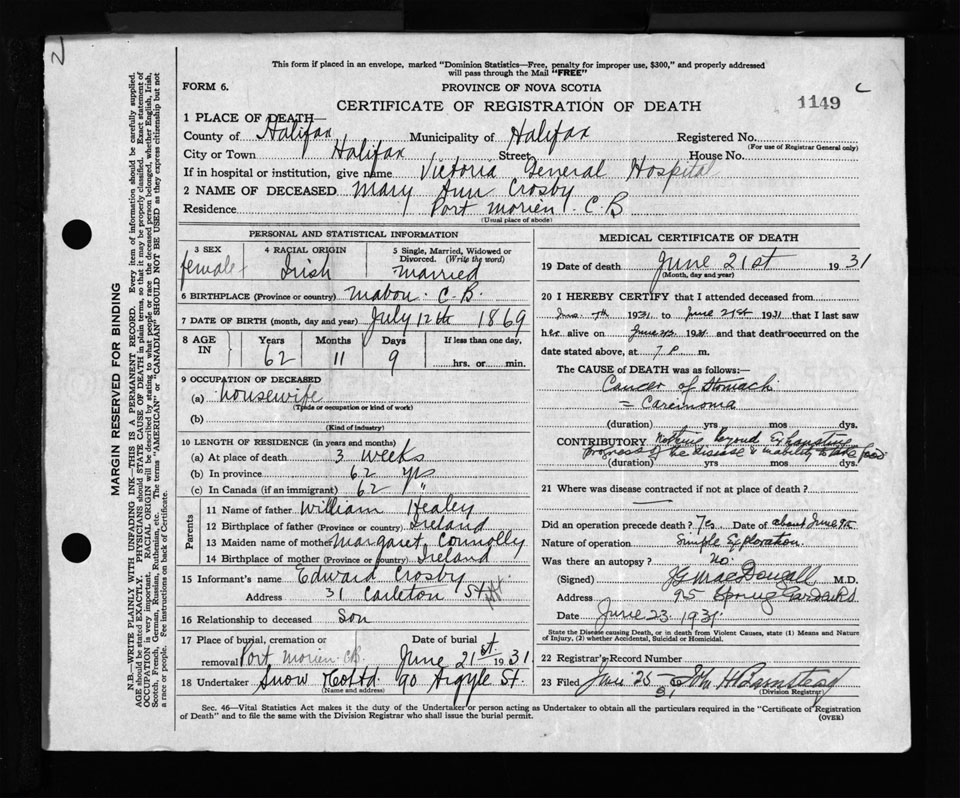 2
This form if placed in an envelope, marked "Dominion Statistics—Free, penalty for improper use, $300," and properly addressed
will pass through the Mail "FREE"
FORM 6.
PROVINCE OF NOVA SCOTIA
CERTIFICATE OF REGISTRATION OF DEATH
1149
C
1 PLACE OF DEATH—
County of Halifax, Municipality of Halifax Registered No.
(For use of Registrar General only)
City or Town Halifax Street House No.
If in hospital or institution, give name Victoria General Hospital
2 NAME OF DECEASED Mary Ann Crosby
Residence Port Morien. C.B
(Usual place of abode)
PERSONAL AND STATISTICAL INFORMATION
3 SEX
female
4 RACIAL ORIGIN
Irish
5 Single, Married, Widowed or
Divorced. (Write the word)
Married
6 BIRTHPLACE (Province or country) Mabou. C.B.
7 DATE OF BIRTH (month, day and year) July 12th 1869
8 AGE
IN
Years
62
Months
11
Days
9
If less than one day,
hrs. or min.
9 OCCUPATION OF DECEASED
(a) housewife
(Trade or occupation or kind of work)
(b)
(Kind of industry)
10 LENGTH OF RESIDENCE (in years and months)
(a) At place of death 3 weeks
(b) In province 62 yrs
(c) In Canada (if an immigrant) 62 "
Parents
11 Name of father William Healey
12 Birthplace of father (Province or country) Ireland
13 Maiden name of mother Margaret Connolly
14 Birthplace of mother (Province or country) Ireland
15 Informant's name Edward Crosby
Address 31 Carleton St
16 Relationship to deceased Son
17 Place of burial, cremation or
removal Port Morien CB.
Date of burial
June 21st 1931
18 Undertaker Snow & Co Ltd 90 Argyle St.
(Name and address)
MEDICAL CERTIFICATE OF DEATH
19 Date of death June 21st 1931
(Month, day and year)
20 I HEREBY CERTIFY that I attended deceased from
June 7th 1931 to June 21st 1931 that I last saw
her alive on 1931 and that death occurred on the
date stated above, at 7 P. m.
The CAUSE of DEATH was as follows:—
Cancer of Stomach
= Carcinoma
(duration) yrs mos dys.
CONTRIBUTORY Nothing beyond Exhaustion
Progress of the disease & inability to take food
(duration) yrs. mos dys.
21 Where was disease contracted if not at place of death?
Did an operation precede death? Yes Date of about June 9th
Nature of operation Simple Exploration.
Was there an autopsy? No.
(Signed) MacDougall M.D.
Address 95 Spring Garden Rd
Date June 23. 1931
State the Disease causing Death, or in death from Violent Causes, state (1) Means and Nature
of Injury, (2) whether Accidental, Suicidal or Homicidal.
22 Registrar's Record Number
23 Filed June 25 31 Barnstead
(Division Registrar)
Sec. 46—Vital Statistics Act makes it the duty of the Undertaker or person acting as Undertaker to obtain all the particulars required in the "Certificate of Registration
of Death" and to file the same with the Division Registrar who shall issue the burial permit.
(OVER)
MARGIN RESERVED FOR BINDING
N.B.—WRITE PLAINLY WITH UNFADING INK—THIS IS A PERMANENT RECORD. Every item of information should be carefully supplied.
AGE should be stated EXACTLY. PHYSICIANS should STATE CAUSE OF DEATH in plain terms, so that it may be properly classified. Exact statement of
OCCUPATION is very important. RACIAL ORIGIN will be described by stating to what people or race the deceased person belonged, whether English, Irish,
Scotch, French, German, Russian, Ruthenian, etc. The terms "AMERICAN" or "CANADIAN" SHOULD NOT BE USED as they express citizenship but not
a race or people. See instructions on back of Certificate.